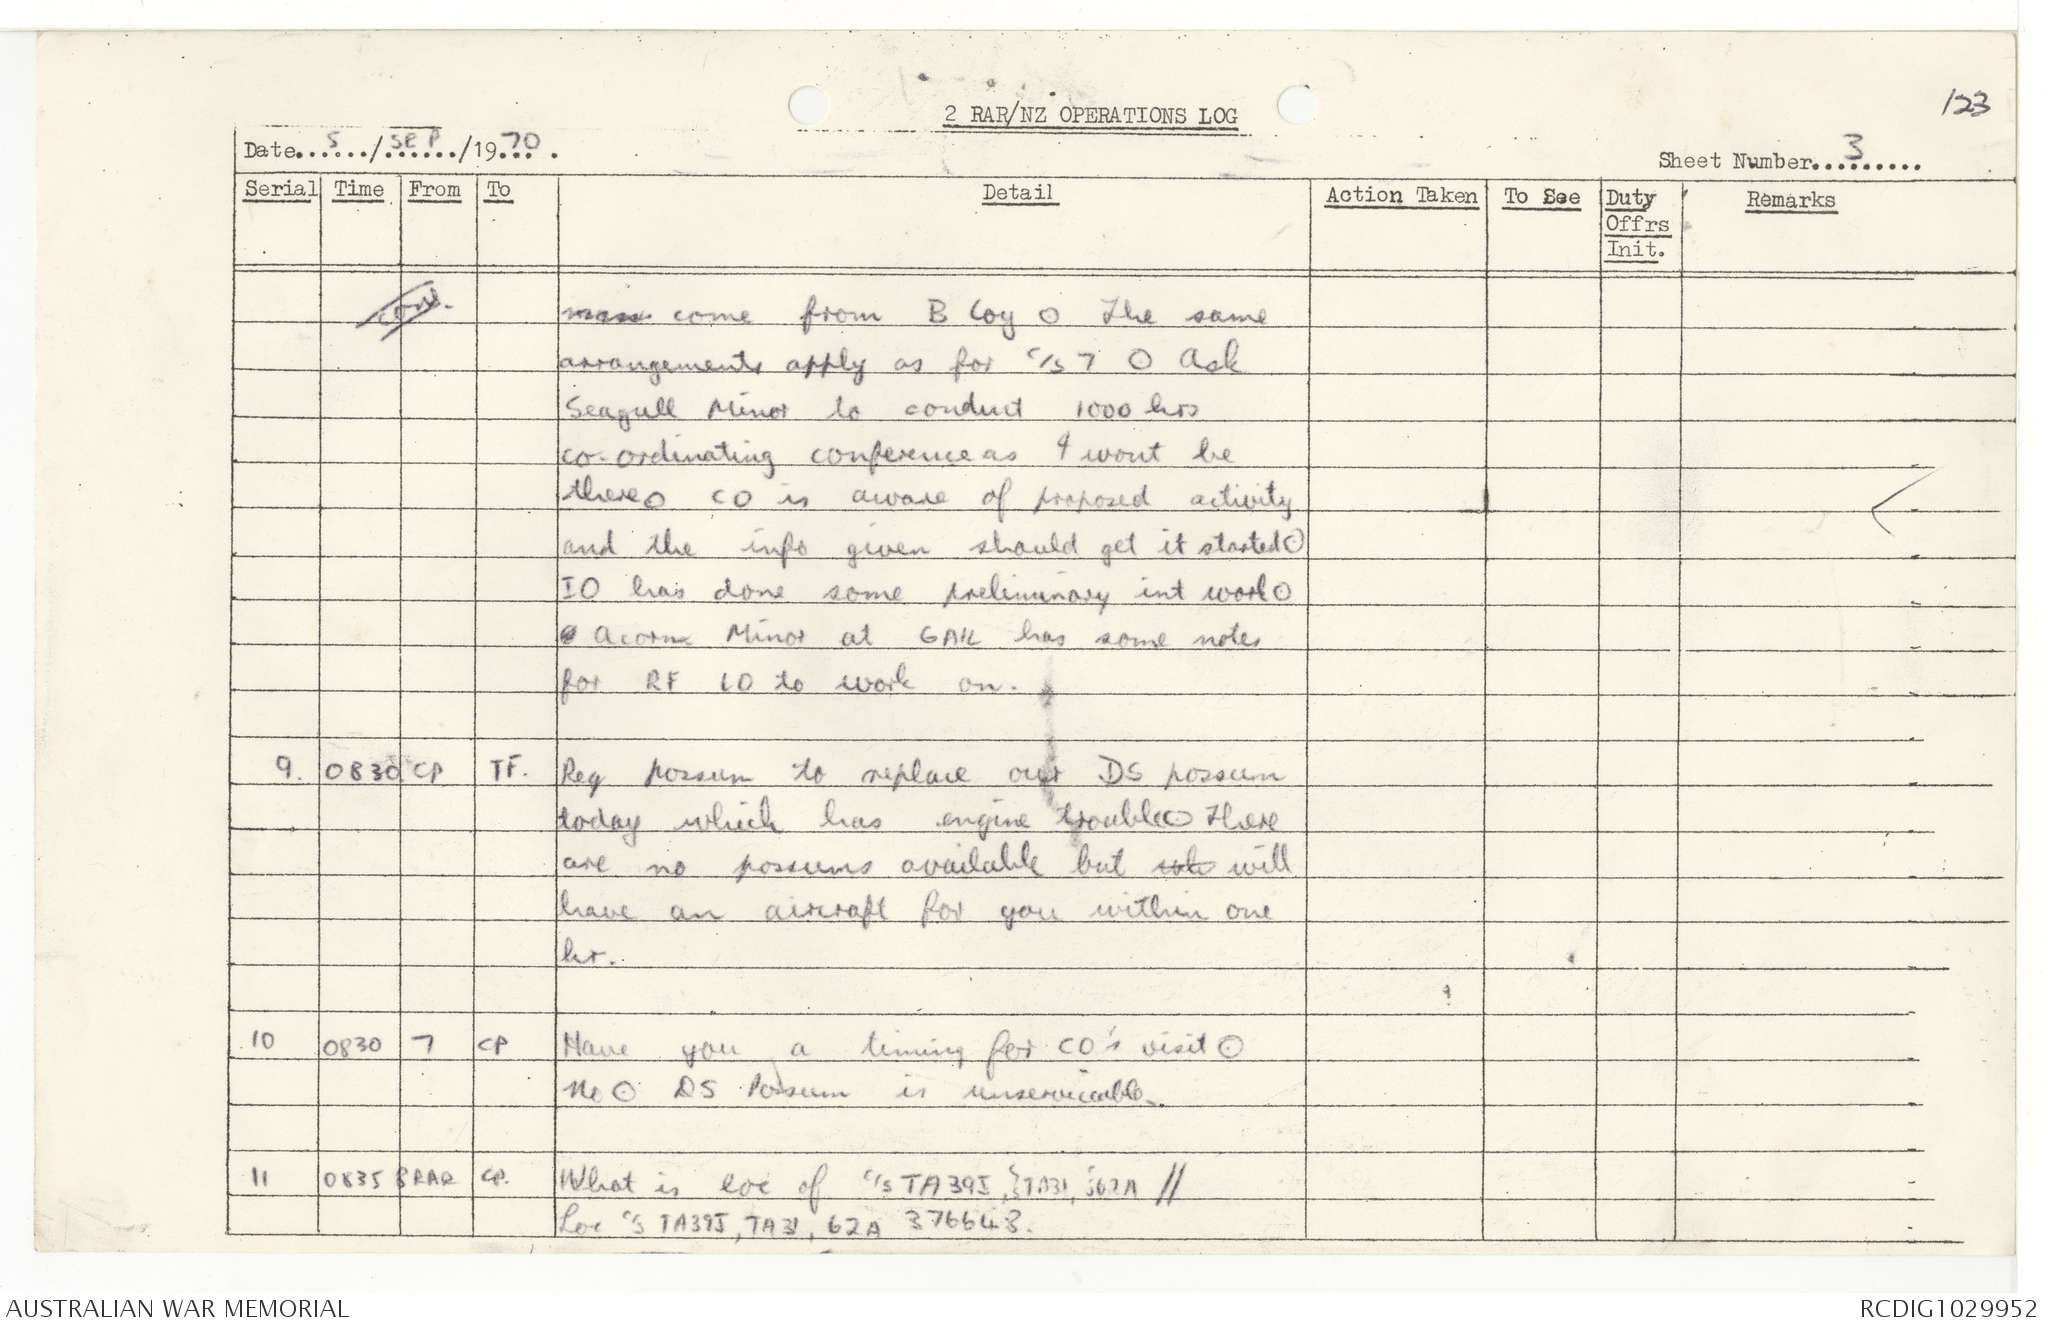 123
2 RAR/NZ OPERATIONS LOG
Date 5 / SEP / 1970.
Sheet Number 3
Serial Time From To Detail Action Taken To See Duty Offrs Init. Remarks
cont. come from B Coy O The same
arrangements apply as for c/s 7 O Ask
Seagull Minor to conduct 1000 hrs
co-ordinating conference as I wont be
there O CO is aware of proposed activity
and the info given should get it started O
IO has done some preliminary int work O
Acorn Minor at GAIL has some notes
for RF LO to work on.
9. 0830 CP TF. Req possum to replace our DS possum
today which has engine trouble O There
are no possums available but will
have an aircraft for you within one
hr.
10 0830 7 CP Have you a timing for CO's visit O
No O DS Possum is unserviceable.
11 0835 8RAR CP. What is loc of c/s TA39I, TA31, 62A //
Loc c/s TA39I, TA31, 62A 376643.
AUSTRALIAN WAR MEMORIAL
RCDIG1029952